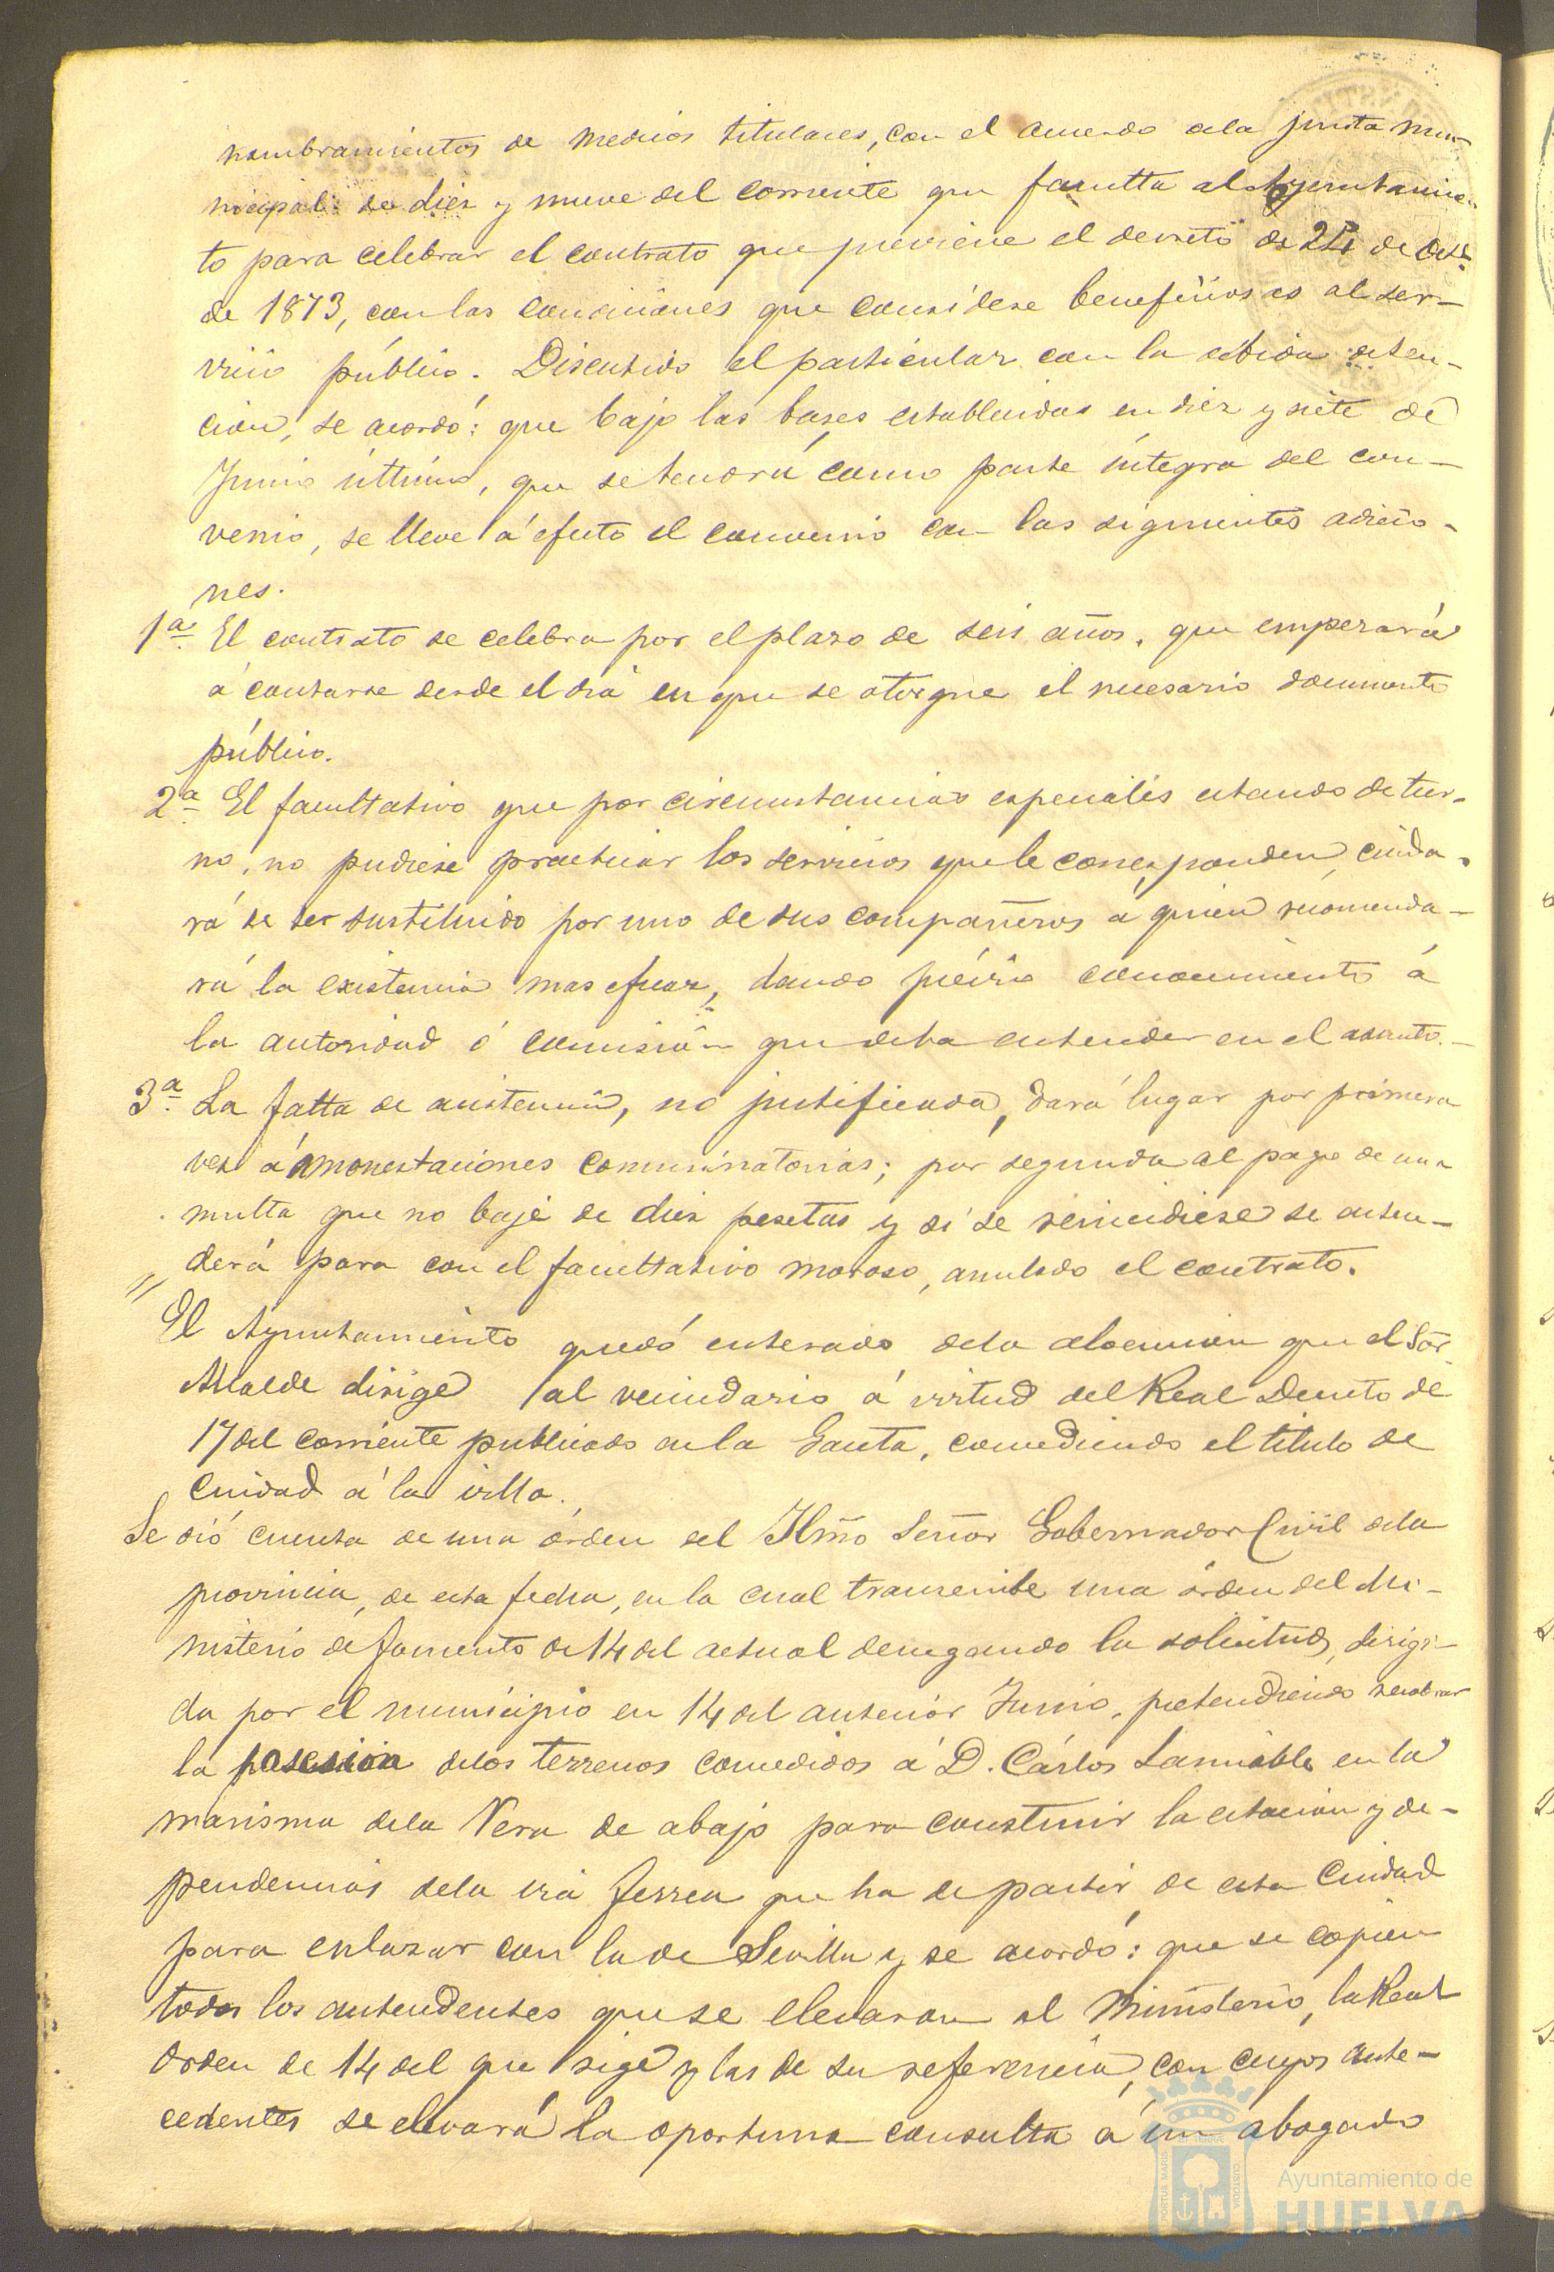 nombramientos de medicos titulares, con el acuerdo dela junta mu-
nicipal de diez y nueve del corriente que faculta al Ayuntamien-
to para celebrar el contrato que previene el decreto de 24 de Oct.
de 1873, con las condiciones que considere beneficiosas al ser-
vicio público. Discutido el particular con la debida deten-
cion, se acordó: que bajo las bases establecidas en diez y siete de
Junio último, que se tendrá como parte íntegra del con-
venio, se lleve á efecto el convenio con las siguientes adicio-
nes.
1ª El contrato se celebra por el plazo de seis años, que empezará
á contarse desde el dia en que se otorgue el necesario documento
público.
2ª El facultativo que por circunstancias especiales estando de tur-
no, no pudiese practicar los servicios que le corresponden, cuida-
rá de ser sustituido por uno de sus compañeros á quien recomenda-
rá la existencia mas eficaz, dando prévio conocimiento á
la autoridad ó comisión que deba entender en el asunto.-
3ª La falta de asistencia, no justificada, dará lugar por primera
vez á amonestaciones conminatorias; por segunda al pago de una
multa que no baje de diez pesetas y si se reincidiese se enten-
derá para con el facultativo moroso, anulado el contrato.
" El Ayuntamiento quedó enterado dela alocucion que el Sor.
Alcalde dirige al vecindario á virtud del Real Decreto de
17 del corriente publicado en la Gaceta, concediendo el titulo de
Ciudad á la villa.
Se dió cuenta de una órden del Ilmo Señor Gobernador Civil dela
provincia, de esta fecha, en la cual transcribe una órden del Mi-
nisterio de Fomento de 14 del actual denegando la solicitud, dirigi-
da por el municipio en 14 del anterior Junio, pretendiendo recobrar
la posesion delos terrenos concedidos á D. Cárlos Lamiable en la
marisma dela Vera de abajo para construir la estacion y de-
pendencias dela via ferrea que ha de partir de esta Ciudad
para enlazar con la de Sevilla y se acordó: que se copien
todos los antendentes que se elevaron al Ministerio, la Real
Orden de 14 del que rige y las de su referencia, con cuyos ante-
cedentes se elevará la oportuna consulta á un abogado
Ayuntamiento de
HUELVA